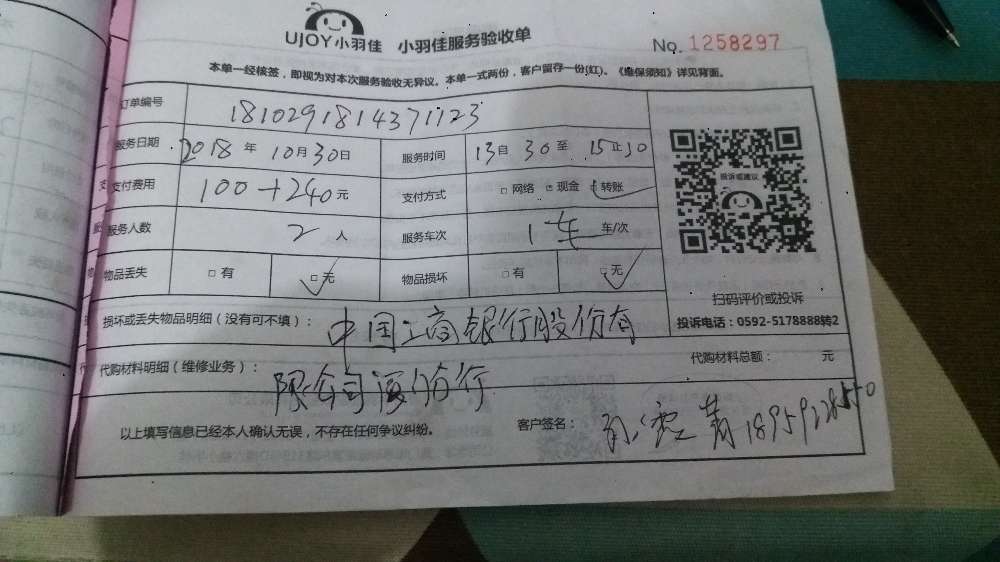 UJOY小羽佳 小羽佳服务验收单 No. 1258297
本单一经核签，即视为对本次服务验收无异议。本单一式两份，客户留存一份(红)。《维保须知》详见背面。
订单编号 1810291814371123
服务日期 2018 年 10月30日 服务时间 13自 30 至 15止30
支付费用 100+240元 支付方式 □ 网络 □ 现金 转账
服务人数 2 人 服务车次 1车 车/次
物品丢失 □ 有 □ 无 物品损坏 □ 有 □ 无
投诉或建议
扫码评价或投诉
投诉电话：0592-5178888转2
损坏或丢失物品明细（没有可不填）： 中国工商银行股份有
代购材料明细（维修业务）： 限公司厦门分行 代购材料总额： 元
以上填写信息已经本人确认无误，不存在任何争议纠纷。 客户签名：